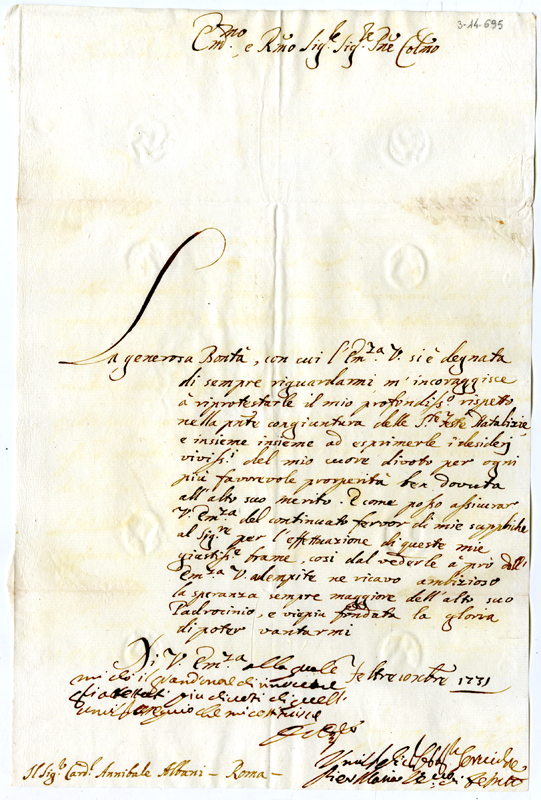 3-14-695
Em.mo e Rmo Sig.re Sig.re Pne Colmo
La generosa Bontà, con cui l'Em.za V. si è degnata
di sempre riguardarmi m'incoraggisce
à riprotestarle il mio profondiss.o rispeto
nella pnte congiuntura delle S.te Feste Natalizie,
e insieme insieme ad esprimerle i desiderj
viviss.i del mio cuore divoto per ogni
più favorevole prosperità ben dovuta
all'alto suo merito. E come posso assicurar
V. Em.za del continuato fervor di mie suppliche
al Sig.re per l'effettuazione di queste mie
giustiss.e brame, così dal vederle à prò dell'
Em.za V. adempite ne ricavo ambizioso
la speranza sempre maggiore dell'alto suo
Padrocinio, e viepiù fondata la gloria
di poter vantarmi
Di V. Em.za alla quale Feltre 1731
mi
più divoti di quell
che mi costituisce
Pier Maria di Feltre
Il Sig.r Card.l Annibale Albani - Roma -